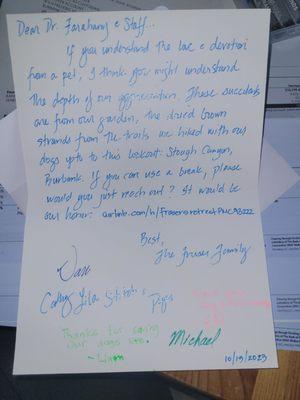 Dear Dr. Farahany & Staff...
If you understand the love & devotion
from a pet, I think you might understand
the depth of our appreciation. These succulents
are from our garden, the dried brown
strands from the trails we hiked with our
dogs up to this lookout: Stough Canyon,
Burbank. If you can use a break, please
would you just reach out? It would be
our honor: airbnb.com/h/
Best,
The Fraser Family
Thanks for saving
our dogs life.
~ Liam
Michael
10/19/2023